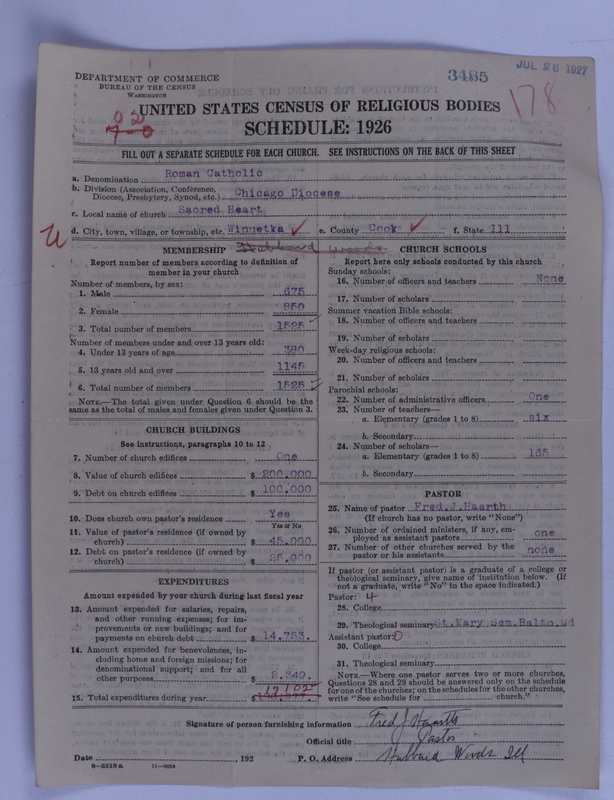 JUL 26 1927
3485
DEPARTMENT OF COMMERCE
BUREAU OF THE CENSUS
WASHINGTON
178
UNITED STATES CENSUS OF RELIGIOUS BODIES
SCHEDULE: 1926
FILL OUT A SEPARATE SCHEDULE FOR EACH CHURCH. SEE INSTRUCTIONS ON THE BACK OF THIS SHEET
a. Denomination Roman Catholic
b. Division (Association, Conference,
Diocese, Presbytery, Synod, etc.) Chicago Diocese
c. Local name of church Sacred Heart
d. City, town, village, or township, etc. Winnetka e. County Cook f. State Ill
Hubbard Woods
MEMBERSHIP
Report number of members according to definition of
member in your church
Number of members, by sex:
1. Male 675
2. Female 850
3. Total number of members 1525
Number of members under and over 13 years old:
4. Under 13 years of age 380
5. 13 years old and over 1145
6. Total number of members 1525
NOTE.—The total given under Question 6 should be the
same as the total of males and females given under Question 3.
CHURCH BUILDINGS
See instructions, paragraphs 10 to 12
7. Number of church edifices One
8. Value of church edifices $ 200,000
9. Debt on church edifices $ 100,000
10. Does church own pastor's residence Yes
Yes or No
11. Value of pastor's residence (if owned by
church) $ 45,000
12. Debt on pastor's residence (if owned by
church) $ 25,000
EXPENDITURES
Amount expended by your church during last fiscal year
13. Amount expended for salaries, repairs,
and other running expenses; for im-
provements or new buildings; and for
payments on church debt $ 14,753.
14. Amount expended for benevolences, in-
cluding home and foreign missions; for
denominational support; and for all
other purposes $ 2,349.
15. Total expenditures during year $ 17102
CHURCH SCHOOLS
Report here only schools conducted by this church
Sunday schools:
16. Number of officers and teachers None
17. Number of scholars
Summer vacation Bible schools:
18. Number of officers and teachers
19. Number of scholars
Week-day religious schools:
20. Number of officers and teachers
21. Number of scholars
Parochial schools:
22. Number of administrative officers One
23. Number of teachers—
a. Elementary (grades 1 to 8) six
b. Secondary
24. Number of scholars—
a. Elementary (grades 1 to 8) 165
b. Secondary
PASTOR
25. Name of pastor Fred.J.Haarth
(If church has no pastor, write "None")
26. Number of ordained ministers, if any, em-
ployed as assistant pastors one
27. Number of other churches served by the
pastor or his assistants none
If pastor (or assistant pastor) is a graduate of a college or
theological seminary, give name of institution below. (If
not a graduate, write "No" in the space indicated.)
Pastor: 4
28. College
29. Theological seminary St.Mary Sem.Balto.Md
Assistant pastor: 0
30. College
31. Theological seminary
NOTE.—Where one pastor serves two or more churches,
Questions 28 and 29 should be answered only on the schedule
for one of the churches; on the schedules for the other churches,
write "See schedule for church."
Signature of person furnishing information Fred J Haarth
Official title Pastor
Date , 192 P. O. Address Hubbard Woods Ill
8—5518 a 11—9034